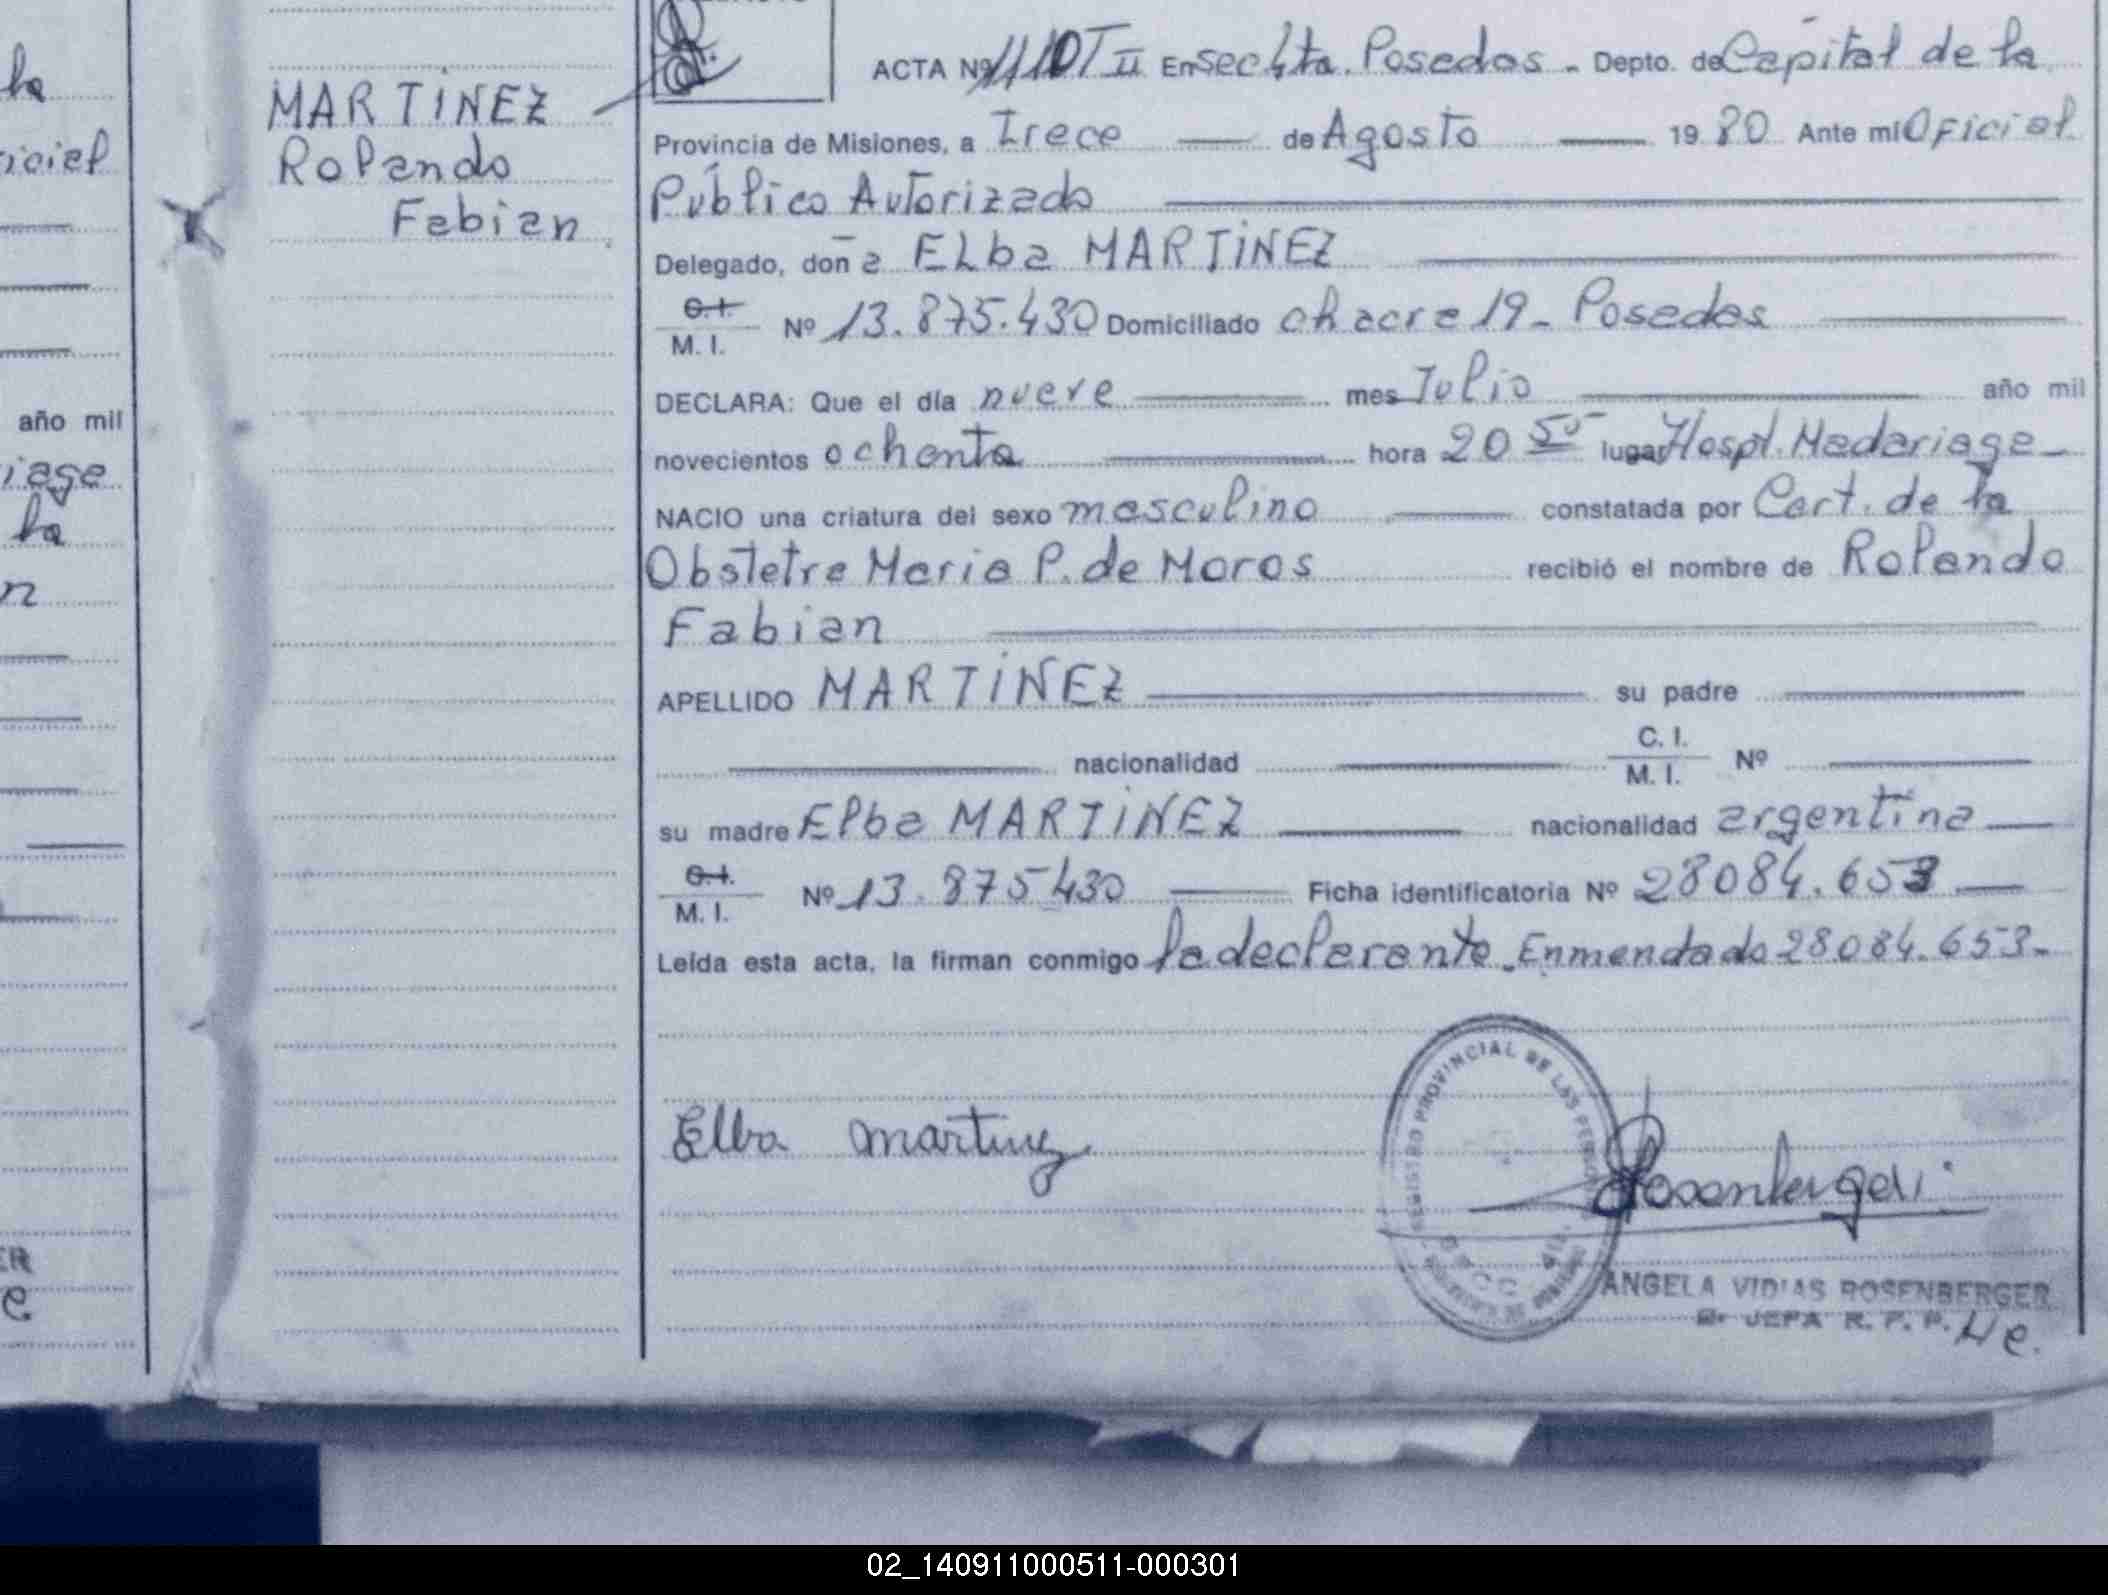 la
MARTINEZ
iciel
Rolando
Fabian
año mil
iage
la
n
ER
e
ACTA Nº 1110 T II En Sec 4ta. Posadas - Depto. de Capital de la
Provincia de Misiones, a Trece de Agosto 1980 Ante mí Oficial
Público Autorizado
Delegado, doña Elba MARTINEZ
C.I. M. I. Nº 13.875.430 Domiciliado chacra 19 - Posadas
DECLARA: Que el día nueve mes Julio año mil
novecientos ochenta hora 20 50 lugar Hospl. Madariaga
NACIO una criatura del sexo masculino constatada por Cert. de la
Obstetra Maria P. de Moros recibió el nombre de Rolando
Fabian
APELLIDO MARTINEZ su padre
nacionalidad C. I. M. I. Nº
su madre Elba MARTINEZ nacionalidad argentina
C.I. M. I. Nº 13.875430 Ficha identificatoria Nº 28084.653
Leída esta acta, la firman conmigo la declarante. Enmendado 28084.653-
Elba martinez
REGISTRO PROVINCIAL DE LAS PERSONAS
ANGELA VIDIAS ROSENBERGER
JEFA R. P. P.
02_140911000511-000301